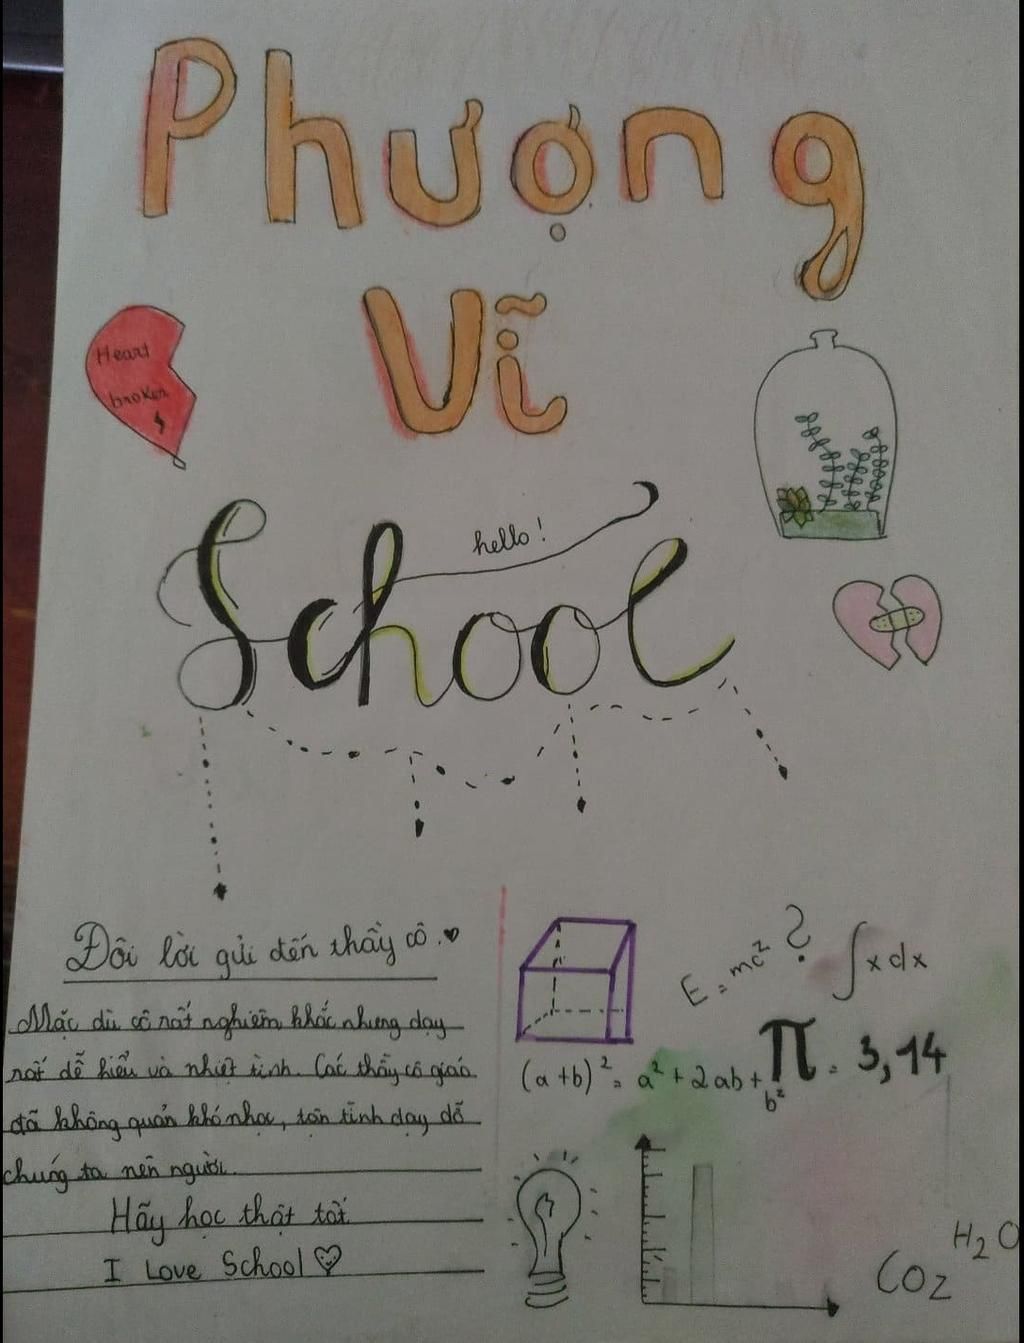 Phượng
Vĩ
Heart
broken
hello!
School
Đôi lời gửi đến thầy cô.
Mặc dù cô rất nghiêm khắc nhưng dạy
rất dễ hiểu và nhiệt tình. Các thầy cô giáo
đã không quản khó nhọc, tận tình dạy dỗ
chúng ta nên người.
Hãy học thật tốt
I Love School
E = mc² ?
∫x dx
π = 3,14
(a+b)² = a² + 2ab + b²
CO2
H2O